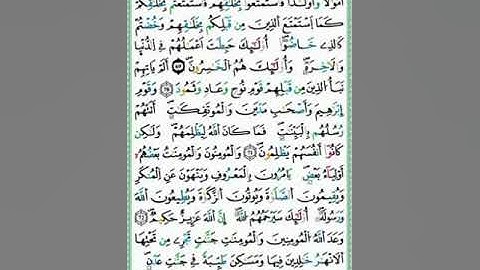 أَمْوَٰلًا وَأَوْلَٰدًا فَاسْتَمْتَعُوا۟ بِخَلَٰقِهِمْ فَاسْتَمْتَعْتُم بِخَلَٰقِكُمْ
كَمَا اَسْتَمْتَعَ اَلذِينَ مِن قَبْلِكُم بِخَلَٰقِهِمْ وَخُضْتُمْ
كَالذِے خَاضُوٓا۟ أُوْلَٰٓئِكَ حَبِطَتَ اَعْمَٰلُهُمْ فِے اِلدُّنْيا
وَالَاخِرَةِ وَأُوْلَٰٓئِكَ هُمُ اُلْخَٰسِرُونَ أَلَمْ يَاتِهِمْ
نَبَأُ اُلذِينَ مِن قَبْلِهِمْ قَوْمِ نُوحٍ وَعَادٍ وَثَمُودَ وَقَوْمِ
إِبْرَٰهِيمَ وَأَصْحَٰبِ مَدْيَنَ وَالْمُوتَفِكَٰتِ أَتَتْهُمْ
رُسُلُهُم بِالْبَيِّنَٰتِ فَمَا كَانَ اَللَّهُ لِيَظْلِمَهُمْ وَلَٰكِن
كَانُوٓا۟ أَنفُسَهُمْ يَظْلِمُونَ وَالْمُومِنُونَ وَالْمُومِنَٰتُ بَعْضُهُمُۥٓ
أَوْلِيَآءُ بَعْضٍ يَامُرُونَ بِالْمَعْرُوفِ وَيَنْهَوْنَ عَنِ اِلْمُنكَرِ
وَيُقِيمُونَ اَلصَّلَوٰةَ وَيُوتُونَ اَلزَّكَوٰةَ وَيُطِيعُونَ اَللَّهَ
وَرَسُولَهُۥٓ أُوْلَٰٓئِكَ سَيَرْحَمُهُمُ اُللَّهُ إِنَّ اَللَّهَ عَزِيزٌ حَكِيمٌ
وَعَدَ اَللَّهُ اُلْمُومِنِينَ وَالْمُومِنَٰتِ جَنَّٰتٍ تَجْرِے مِن تَحْتِهَا
اَلَانْهَٰرُ خَٰلِدِينَ فِيهَا وَمَسَٰكِنَ طَيِّبَةً فِے جَنَّٰتِ عَدْنٍ